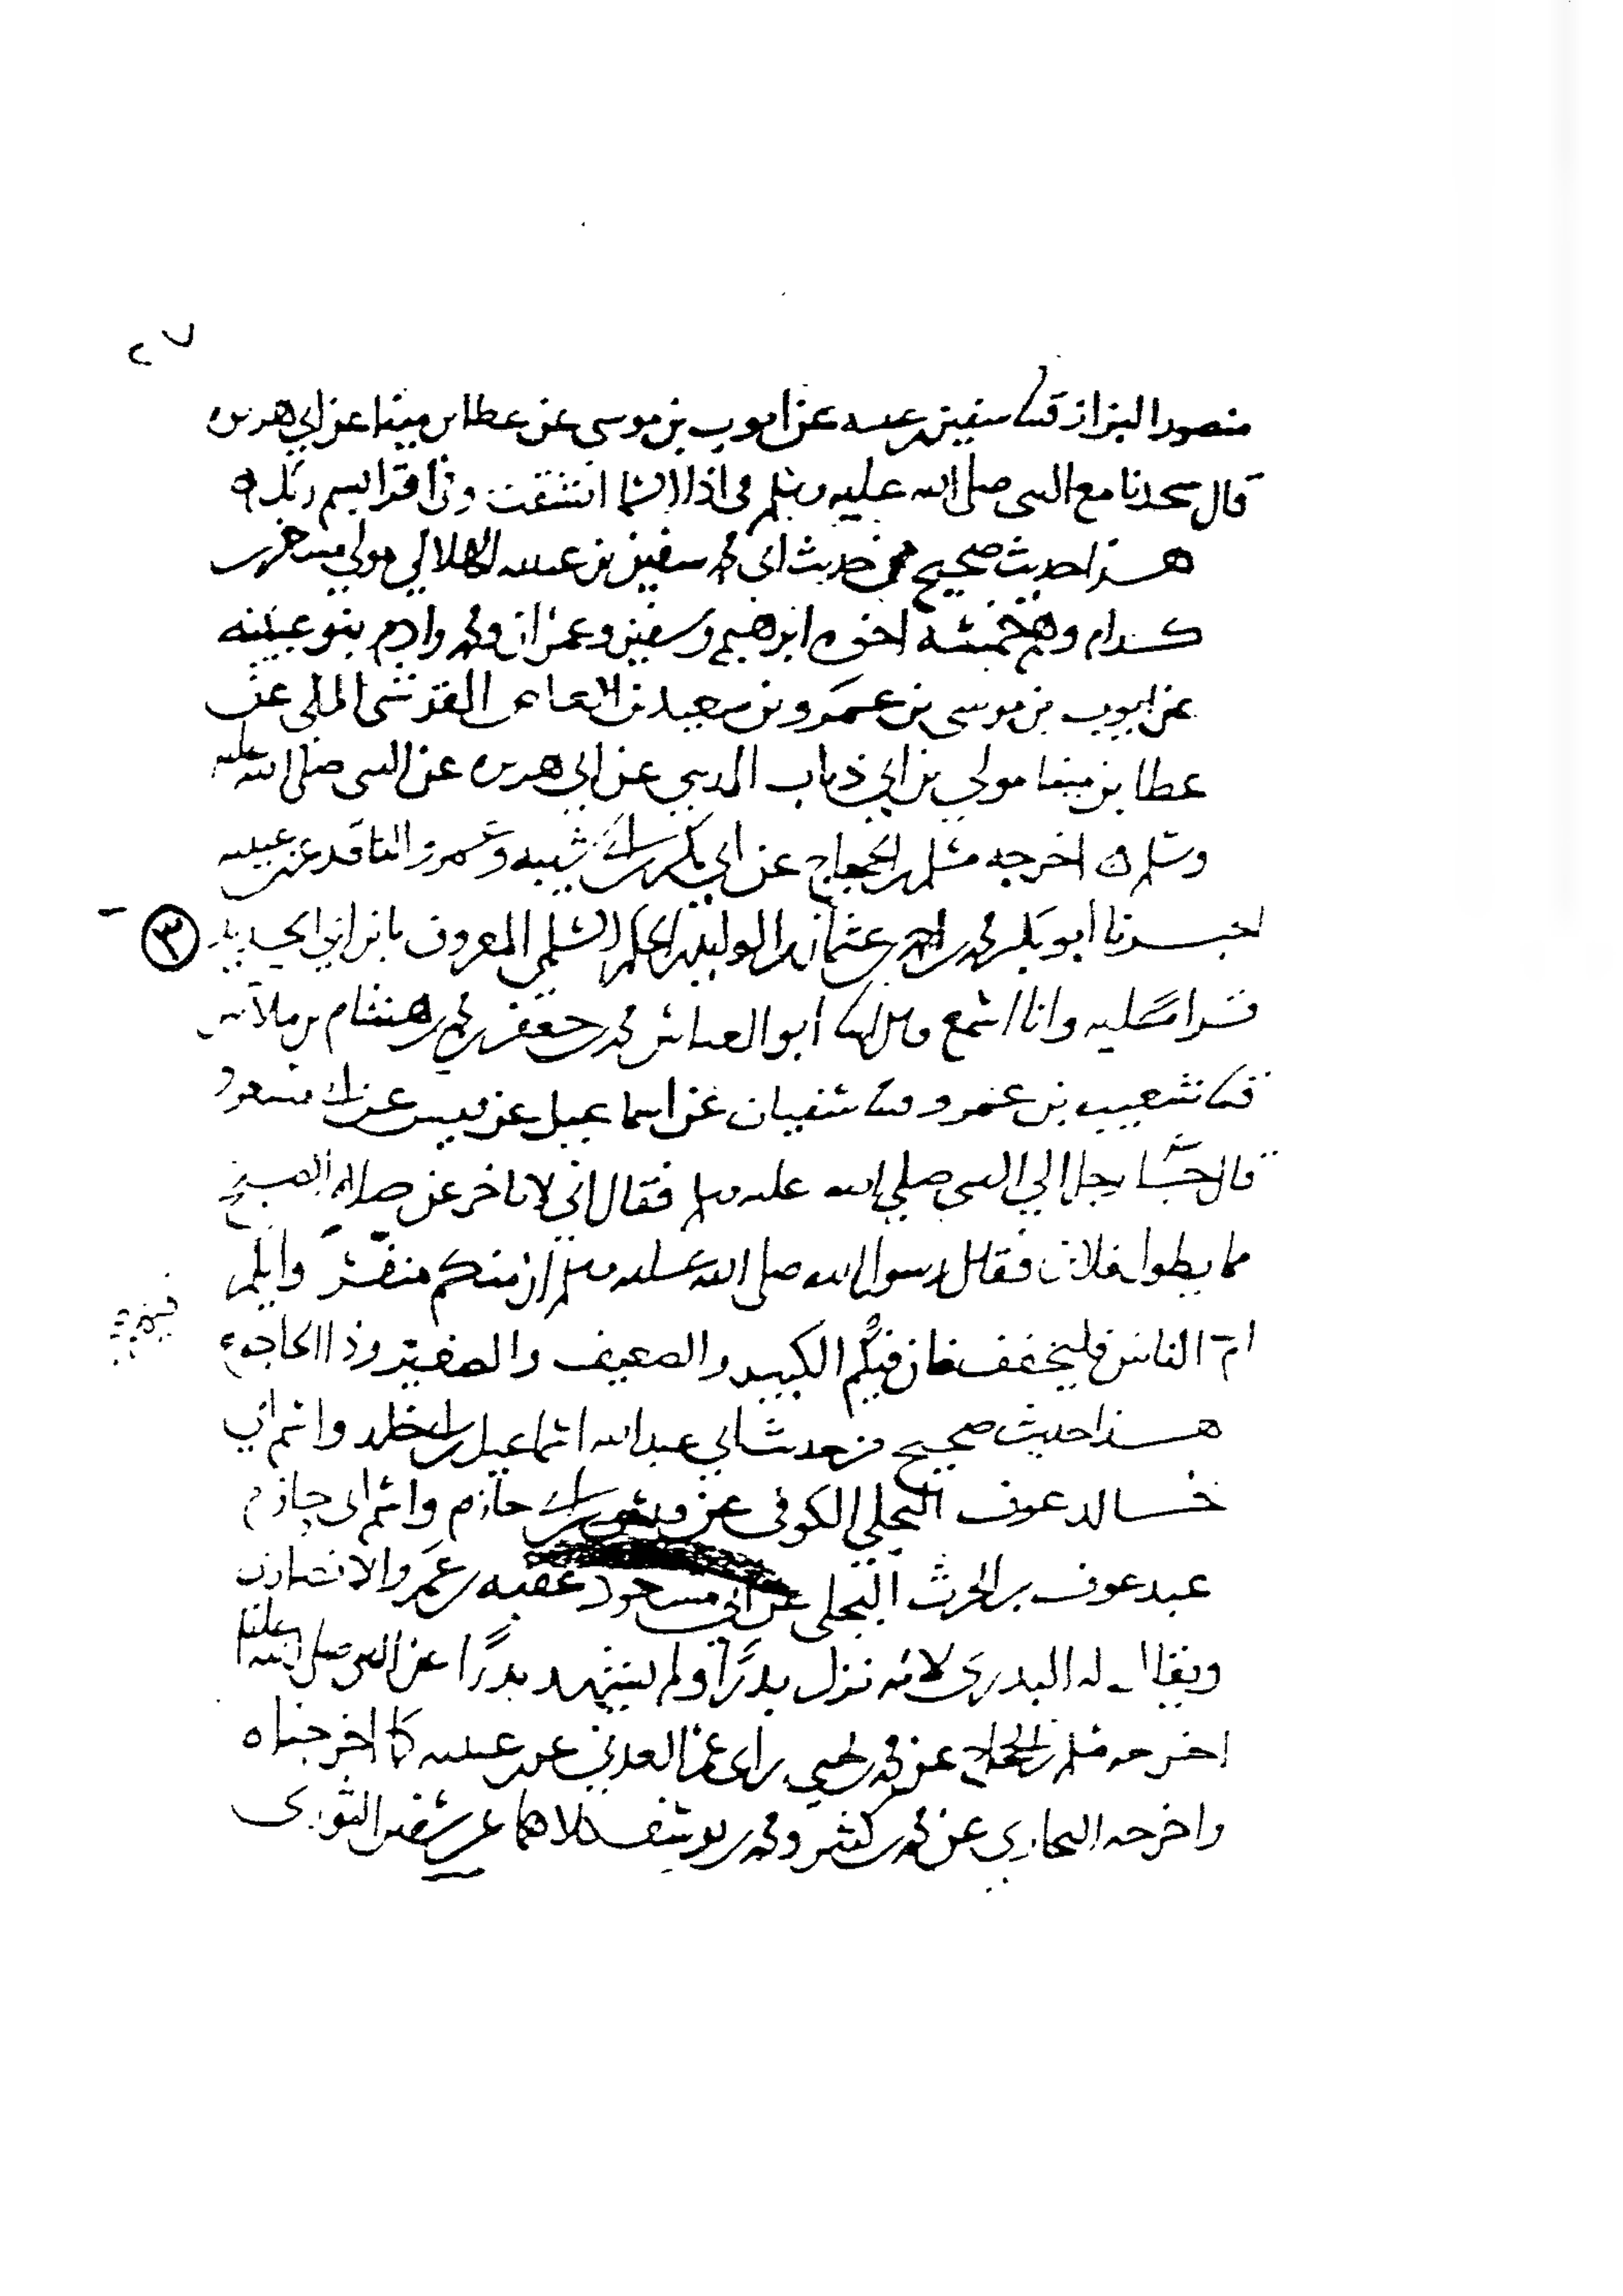 ٢٧
منصور البزاز قثنا سفين بن عيينه عن ايوب بن موسى عن عطا بن مينا عن ابي هريره
قال سجدنا مع النبي صلى الله عليه وسلم في اذا السما انشقت وفي اقرا بسم ربك ه
هذا حديث صحيح من حديث ابي محمد سفين بن عيينه الهلالي مولى مسعر بن
كدام وهم خمسه اخوه ابرهيم وسفين وعمران ومحمد وادم بنو عيينه
عن ايوب بن موسى بن عمرو بن سعيد بن العاص القرشي المكي عن
عطا بن مينا مولى بن ابي ذباب المديني عن ابي هريره عن النبي صلى الله عليه
وسلم ه اخرجه مسلم بن الحجاج عن ابي بكر بن ابي شيبه وعمرو الناقد عن بن عيينه
اخبرنا ابو بكر محمد بن احمد بن عثمان بن الوليد بن الحكم السلمي المعروف بابن ابي الحديد
٣
قراة عليه وانا اسمع قال ابنا ابو العباس محمد بن جعفر بن محمد بن هشام بن ملاس
قثنا شعيب بن عمرو قثنا سفيان عن اسماعيل عن قيس عن ابي مسعود
قال جا رجل الى النبي صلى الله عليه وسلم فقال اني لاتاخر عن صلاة الصبح
مما يطول فلان فقال رسول الله صلى الله عليه وسلم ان منكم منفر وايكم
ام الناس فليخفف فان فيكم الكبير والضعيف والصغير وذا الحاجه
هذا حديث صحيح من حديث ابي عبد الله اسماعيل بن ابي خلد واسم ابي
خالد عوف البجلي الكوفي عن قيس بن ابي حازم واسم ابي حازم
عبد عوف بن الحرث البجلي عن ابي مسعود عقبه بن عمرو الانصاري
ويقال له البدري لانه نزل بدرا ولم يشهد بدرا عن النبي صلى الله عليه
اخرجه مسلم بن الحجاج عن محمد بن يحيى بن ابي عمر العدني عن بن عيينه كما اخرجناه
واخرجه البخاري عن محمد بن كثير ومحمد بن يوسف كلاهما عن سفين الثوري